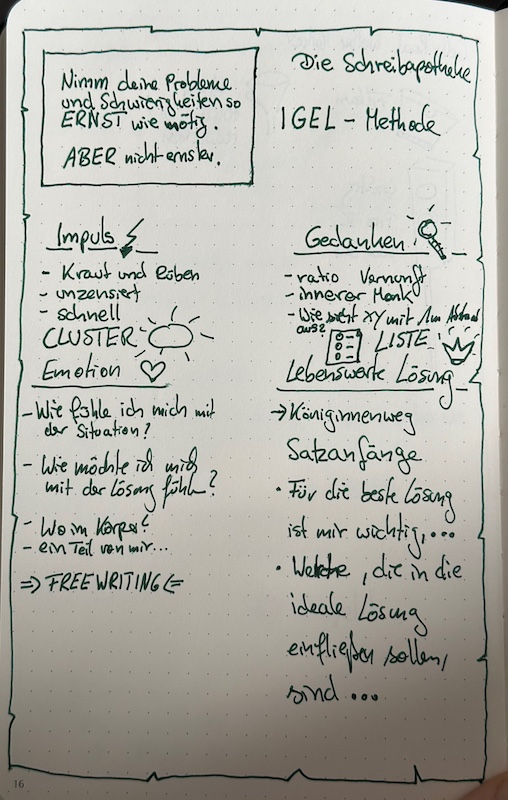 Nimm deine Probleme
und Schwierigkeiten so
ERNST wie nötig.
ABER nicht ernster.
Die Schreibapotheke
IGEL - Methode
Impuls
- Kraut und Rüben
- unzensiert
- schnell
CLUSTER
Emotion
- Wie fühle ich mich mit
der Situation?
- Wie möchte ich mich
mit der Lösung fühlen?
- Wo im Körper?
- ein Teil von mir...
=> FREEWRITING <=
Gedanken
- ratio Vernunft
- innerer Monk
- Wie sieht XY mit 1m Abstand
aus?
LISTE
Lebenswerte Lösung
→ Königinnenweg
Satzanfänge
• Für die beste Lösung
ist mir wichtig, ...
• , die in die
ideale Lösung
einfließen sollen,
sind ...
16